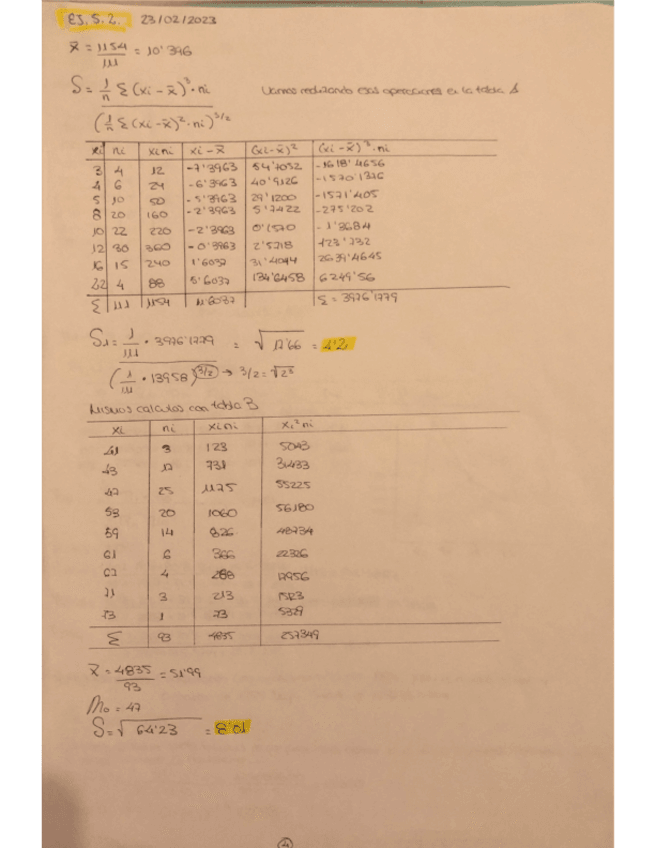 EJ. 5.2. 23/02/2023
x̄ = 1154/111 = 10'396
S = 1/n Σ (xi - x̄)³ · ni / (1/n Σ (xi - x̄)² · ni)^3/2
Vamos realizando esas operaciones en la tabla A
xi ni xini xi - x̄ (xi - x̄)² (xi - x̄)³ · ni
3 4 12 -7'3963 54'7052 -1618'4656
4 6 24 -6'3963 40'9126 -1570'1376
5 10 50 -5'3963 29'1200 -1571'405
8 20 160 -2'3963 5'7422 -275'202
10 22 220 -2'3963 0'1570 -1'3684
12 30 360 -0'3963 2'5718 +123'732
16 15 240 1'6037 31'4044 2639'4645
22 4 88 5'6037 134'6458 6249'56
Σ 111 1154 11'6037 Σ = 3976'1779
S1 = 1/111 · 3976'1779 / (1/111 · 13958)^3/2 → 3/2 = √2³ = √17'66 = 4'2
Mismos calculos con tabla B
xi ni xini xi²ni
41 3 123 5043
43 17 731 31433
47 25 1175 55225
53 20 1060 56180
59 14 826 48734
61 6 366 22326
67 4 268 17956
71 3 213 15123
73 1 73 5329
Σ 93 4835 257349
x̄ = 4835/93 = 51'99
Mo = 47
S = √64'23 = 8'01
4